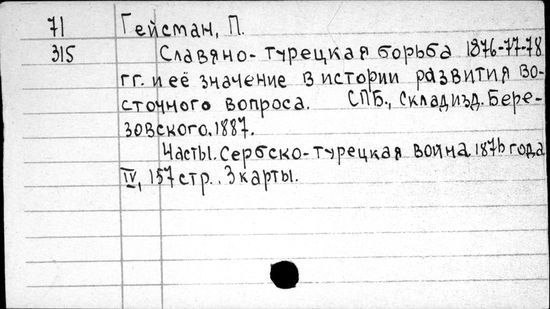 71 Гейсман, П.
315 Славяно-турецкая борьба 1876-77-78
гг. и её значение в истории развития во-
сточного вопроса. СПБ., Склад изд. Бере-
зовского, 1887.
Часть I. Сербско-турецкая война 1876 года
IV, 157 стр., 3 карты.